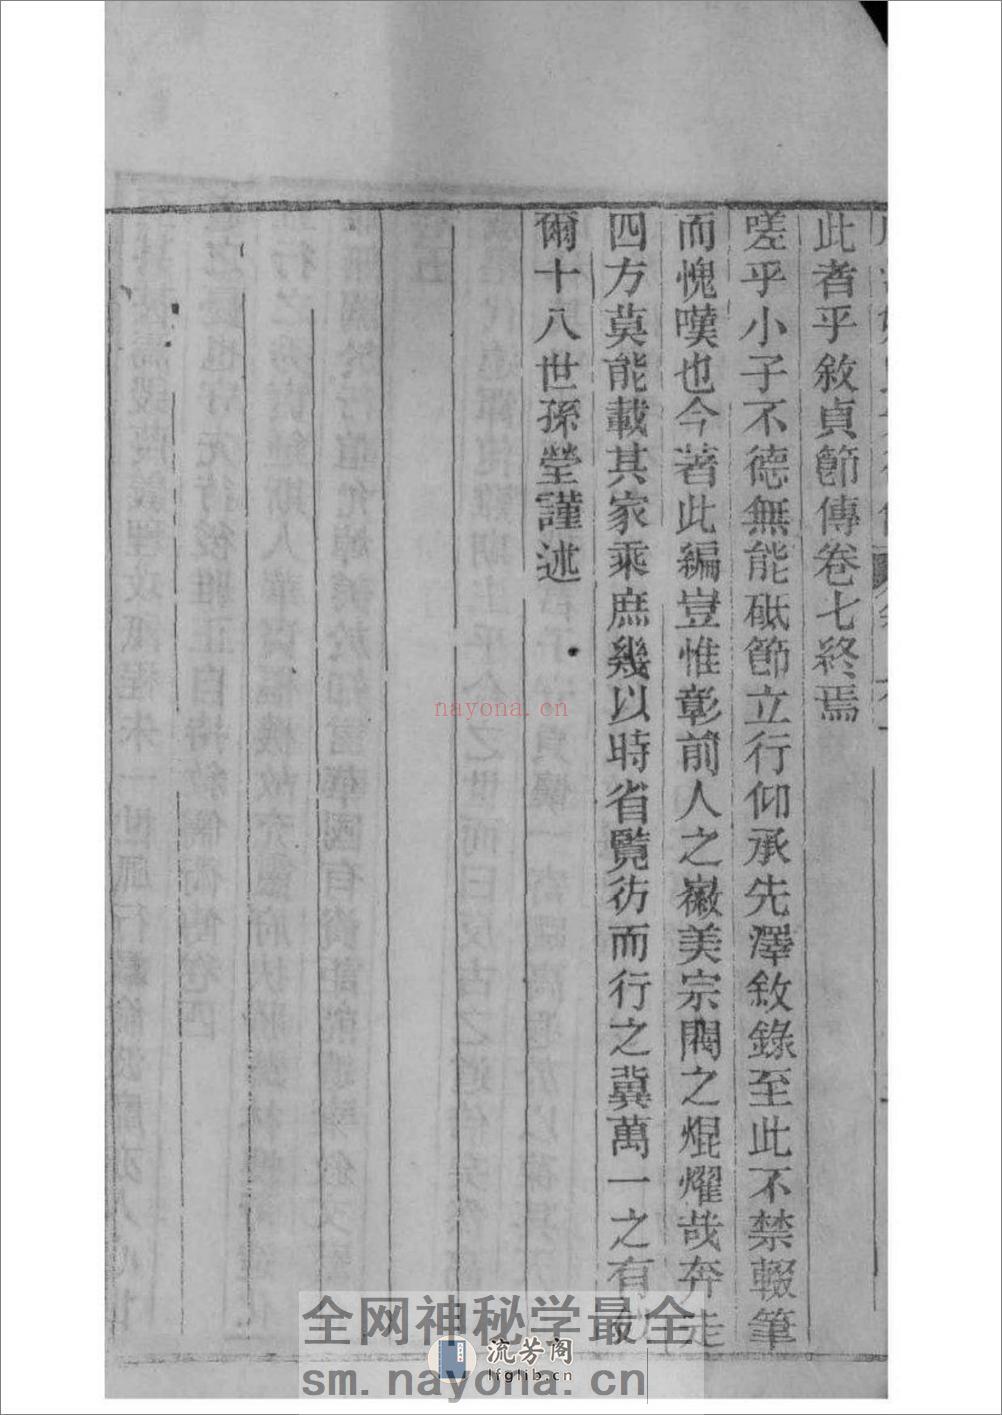 此者乎敘貞節傳卷七終焉
嗟乎小子不德無能砥節立行仰承先澤敘錄至此不禁輟筆
而愧嘆也今著此編豈惟彰前人之徽美宗閥之焜燿哉奔走
四方莫能載其家乘庶幾以時省覽彷而行之冀萬一之有
爾十八世孫瑩謹述
nayona.cn
全网神秘学最全
流芳阁
lfglib.cn
sm.nayona.cn